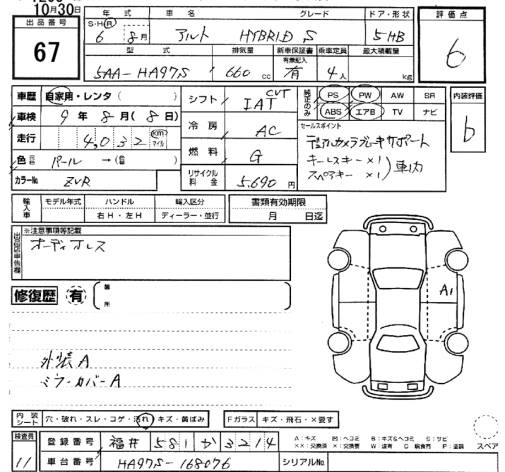 10月30日
出品番号 年式 車名 グレード ドア・形状 評価点
67 S・H・R 6年 8月 アルト HYBRID S 5HB 6
型式 排気量 新車保証書 乗車定員 最大積載量
有無記入
5AA-HA97S 660cc 有 4人 kg
車歴 自家用・レンタ( ) シフト CVT IAT 純正のみ PS PW AW SR 内装評価
車検 9年8月(8日) ABS エアB TV ナビ b
走行 4,032 km マイル 冷房 AC セールスポイント
色 元色 パール →(色 ) 燃料 G デュアルカメラブレーキサポート
キーレスキー×1
スペアキー×1 車内
カラーNo ZVR リサイクル料金 5,690円
輸入車 モデル年式 ハンドル 輸入区分 書類有効期限
右H・左H ディーラー・並行 月 日迄
出品店申告欄 ※注意事項等記載
オーディオレス
修復歴 有 箇所
A1
外装A
ミラーカバーA
内装シート 穴・破れ・スレ・コゲ・汚れ・キズ・黄ばみ Fガラス キズ・飛石・×要す
検査員 登録番号 福井 581 か 3214 A:キズ U:ヘコミ B:キズ&ヘコミ S:サビ
XX:交換済 X:要交換 W:波有 C:腐食有 P:塗装 スペア
11 車台番号 HA97S-168076 シリアルNo.